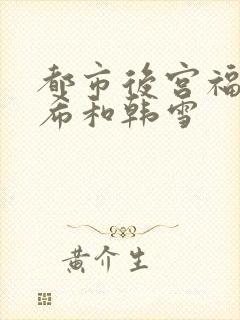 都市後宮福
希和韩雪
黄介生